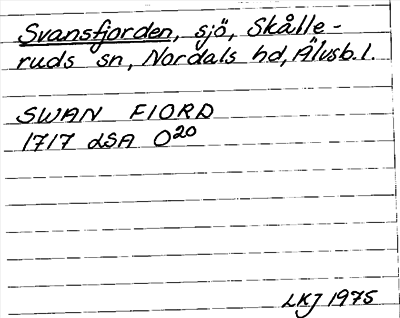 Svansfjorden, sjö, Skålle-
ruds sn, Nordals hd, Älvsb.l.
SWAN FIORD
1717 LSA O20
LKJ 1975